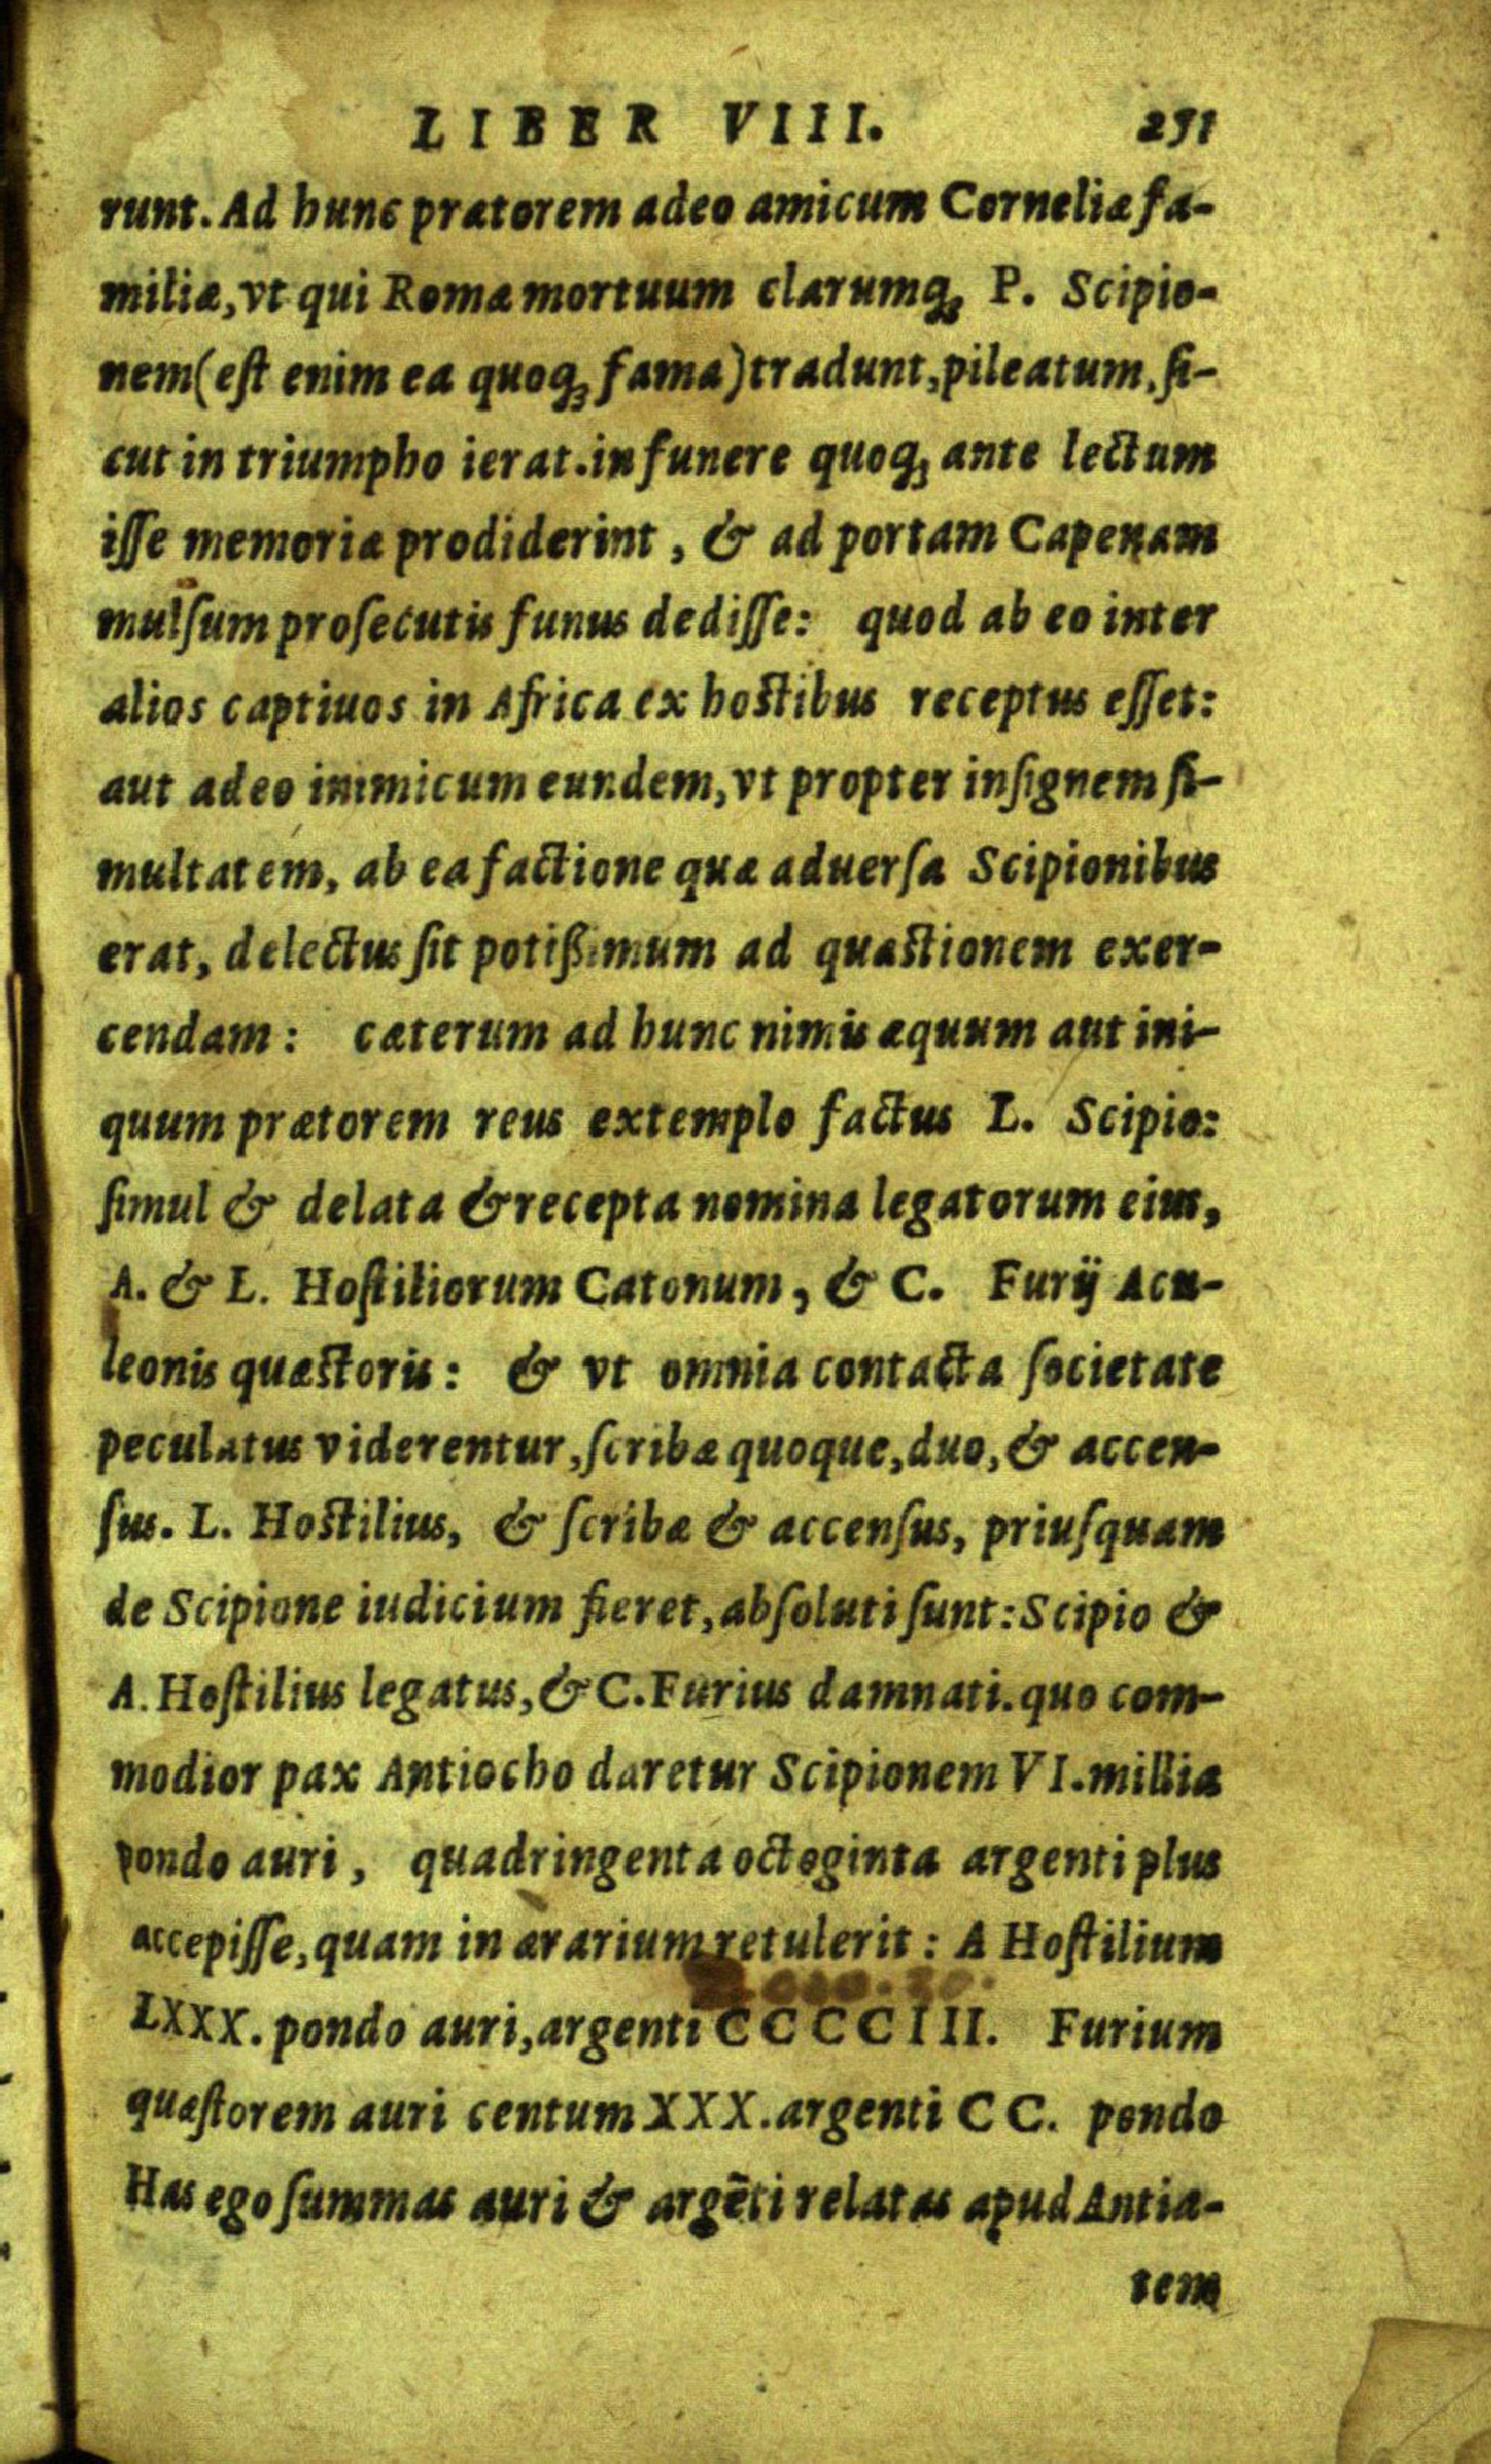 LIBER VIII. 251
runt. Ad hunc prætorem adeo amicum Corneliæ fa-
miliæ, vt qui Romæ mortuum clarumq; P. Scipio-
nem (est enim ea quoq; fama) tradunt, pileatum, si-
cut in triumpho ierat. in funere quoq; ante lectum
isse memoriæ prodiderint, & ad portam Capenam
mulsum prosecutis funus dedisse: quod ab eo inter
alios captiuos in Africa ex hostibus receptus esset:
aut adeo inimicum eundem, vt propter insignem si-
multatem, ab ea factione quæ aduersa Scipionibus
erat, delectus sit potißimum ad quæstionem exer-
cendam: cæterum ad hunc nimis æquum aut ini-
quum prætorem reus extemplo factus L. Scipio:
simul & delata & recepta nomina legatorum eius,
A. & L. Hostiliorum Catonum, & C. Furij Acu-
leonis quæstoris: & vt omnia contacta societate
peculatus viderentur, scribæ quoque, duo, & accen-
sus. L. Hostilius, & scribæ & accensus, priusquam
de Scipione iudicium fieret, absoluti sunt: Scipio &
A. Hostilius legatus, & C. Furius damnati. quo com-
modior pax Antiocho daretur Scipionem VI. millia
pondo auri, quadringenta octoginta argenti plus
accepisse, quam in ærarium retulerit: A Hostilium
LXXX. pondo auri, argenti CCCCIII. Furium
quæstorem auri centum XXX. argenti CC. pondo
Has ego summas auri & argēti relatas apud Antia-
tem